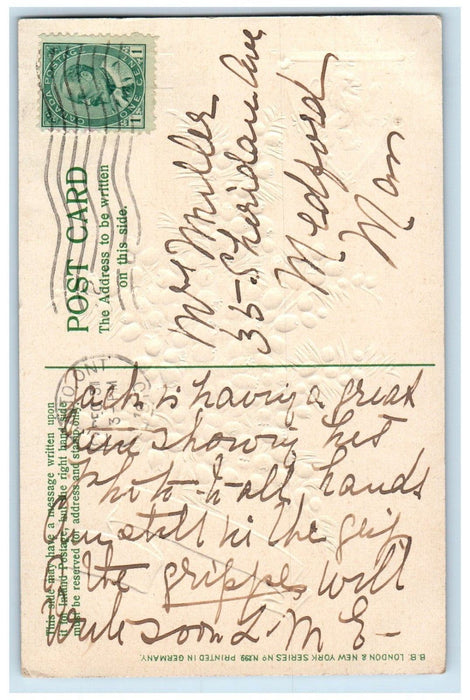 CANADA POSTAGE
1 ONE CENT 1
POST CARD
The Address to be written
on this side.
Mr Miller
35 Sheridan Ave
Medford
Mass
This side may have a message written upon
it for Inland Postage, but the right hand side
must be reserved for address and stamp only.
ONT
Jack is having a great
time showing his
photo to all hands
Am still in the grip
of the grippe, will
write soon L. M. E-
B.B. LONDON & NEW YORK SERIES No N.299 PRINTED IN GERMANY.